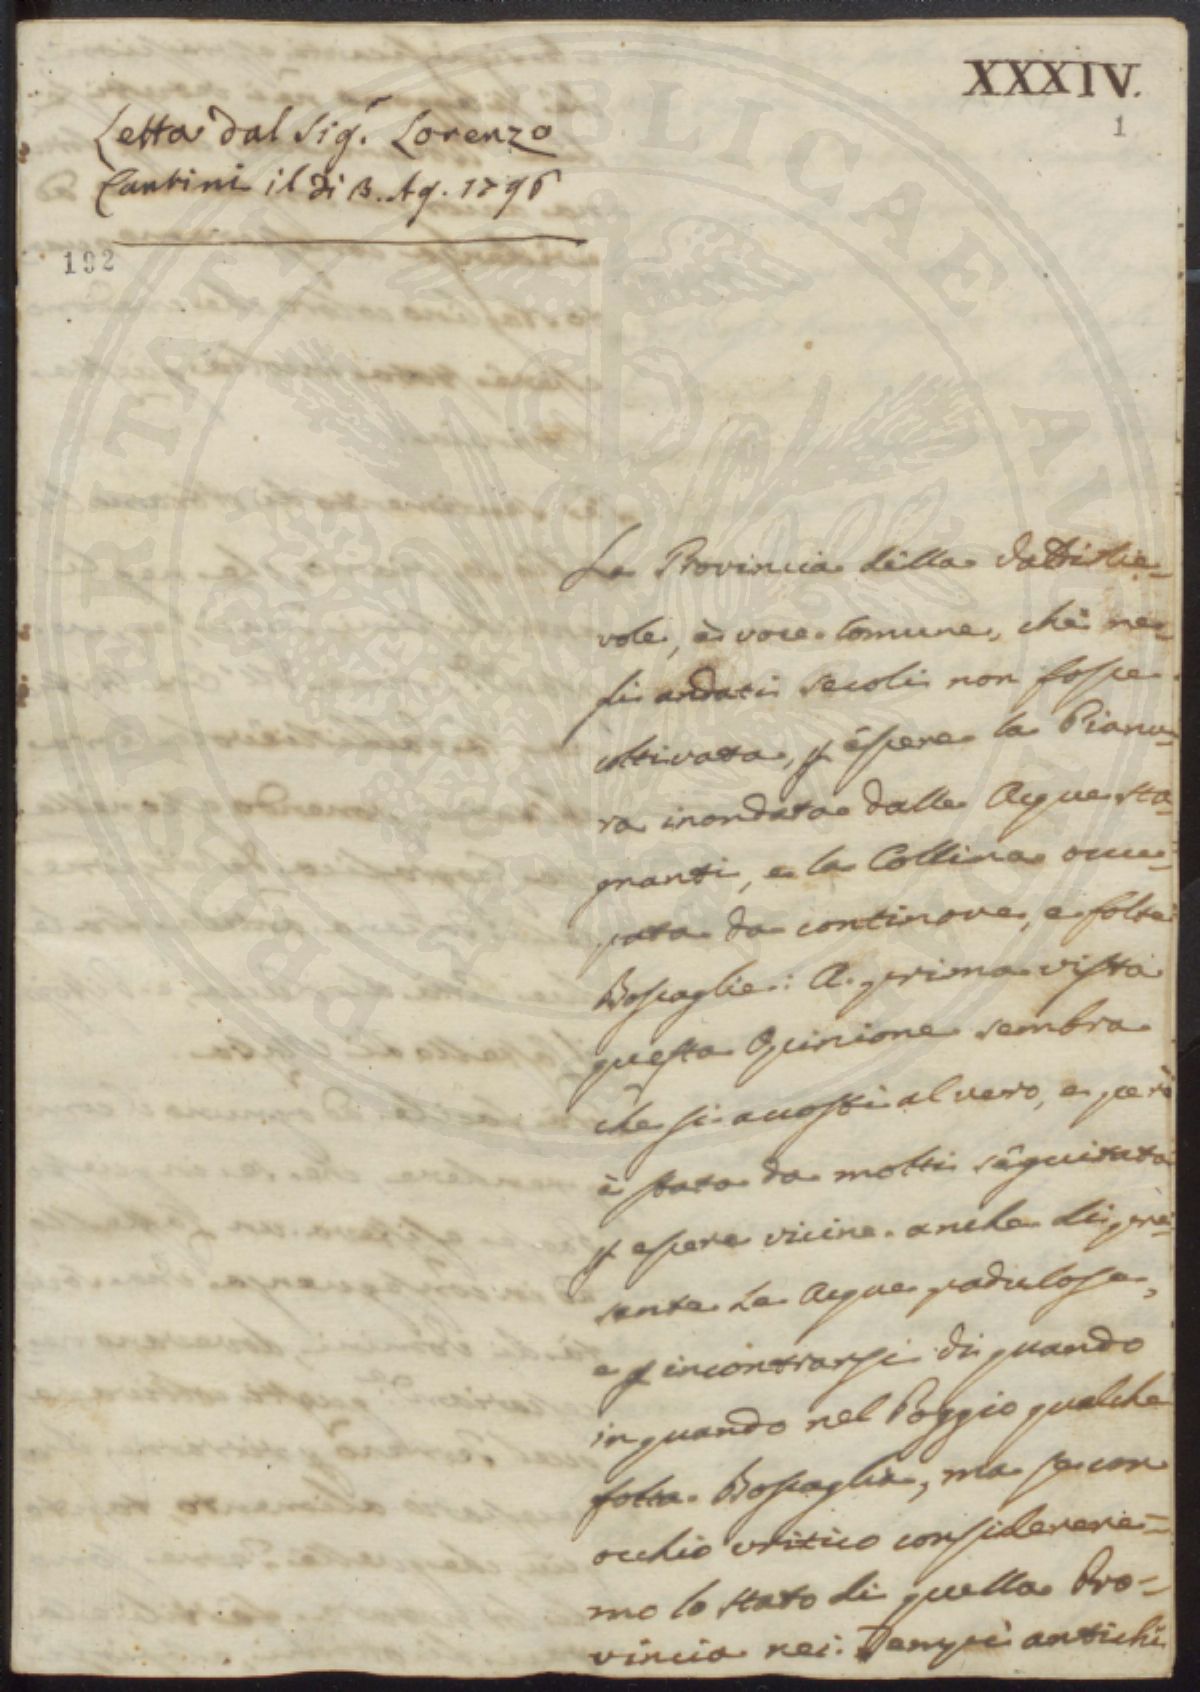 XXXIV.
1
Letta dal Sig.r Lorenzo
Cantini il dì 3. Ag. 1796
192
PROSPERITATI PUBLICAE AUGENDAE
La Provincia della Valdinie-
vole, è voce comune, che ne-
gli andati secoli non fosse
coltivata, p essere la Pianu-
ra inondata dalle Acque sta-
gnanti, e la Collina occu-
pata da continove, e folte
Boscaglie: A prima vista
questa Opinione sembra
che si accosti al vero, e però
è stata da molti seguitata
p essere vicine anche di pre-
sente le Acque padulose,
e p incontrarsi di quando
in quando nel Poggio qualche
folta Boscaglia, ma se con
occhio critico considerere-
mo lo stato di quella Pro-
vincia nei Tempi antichi